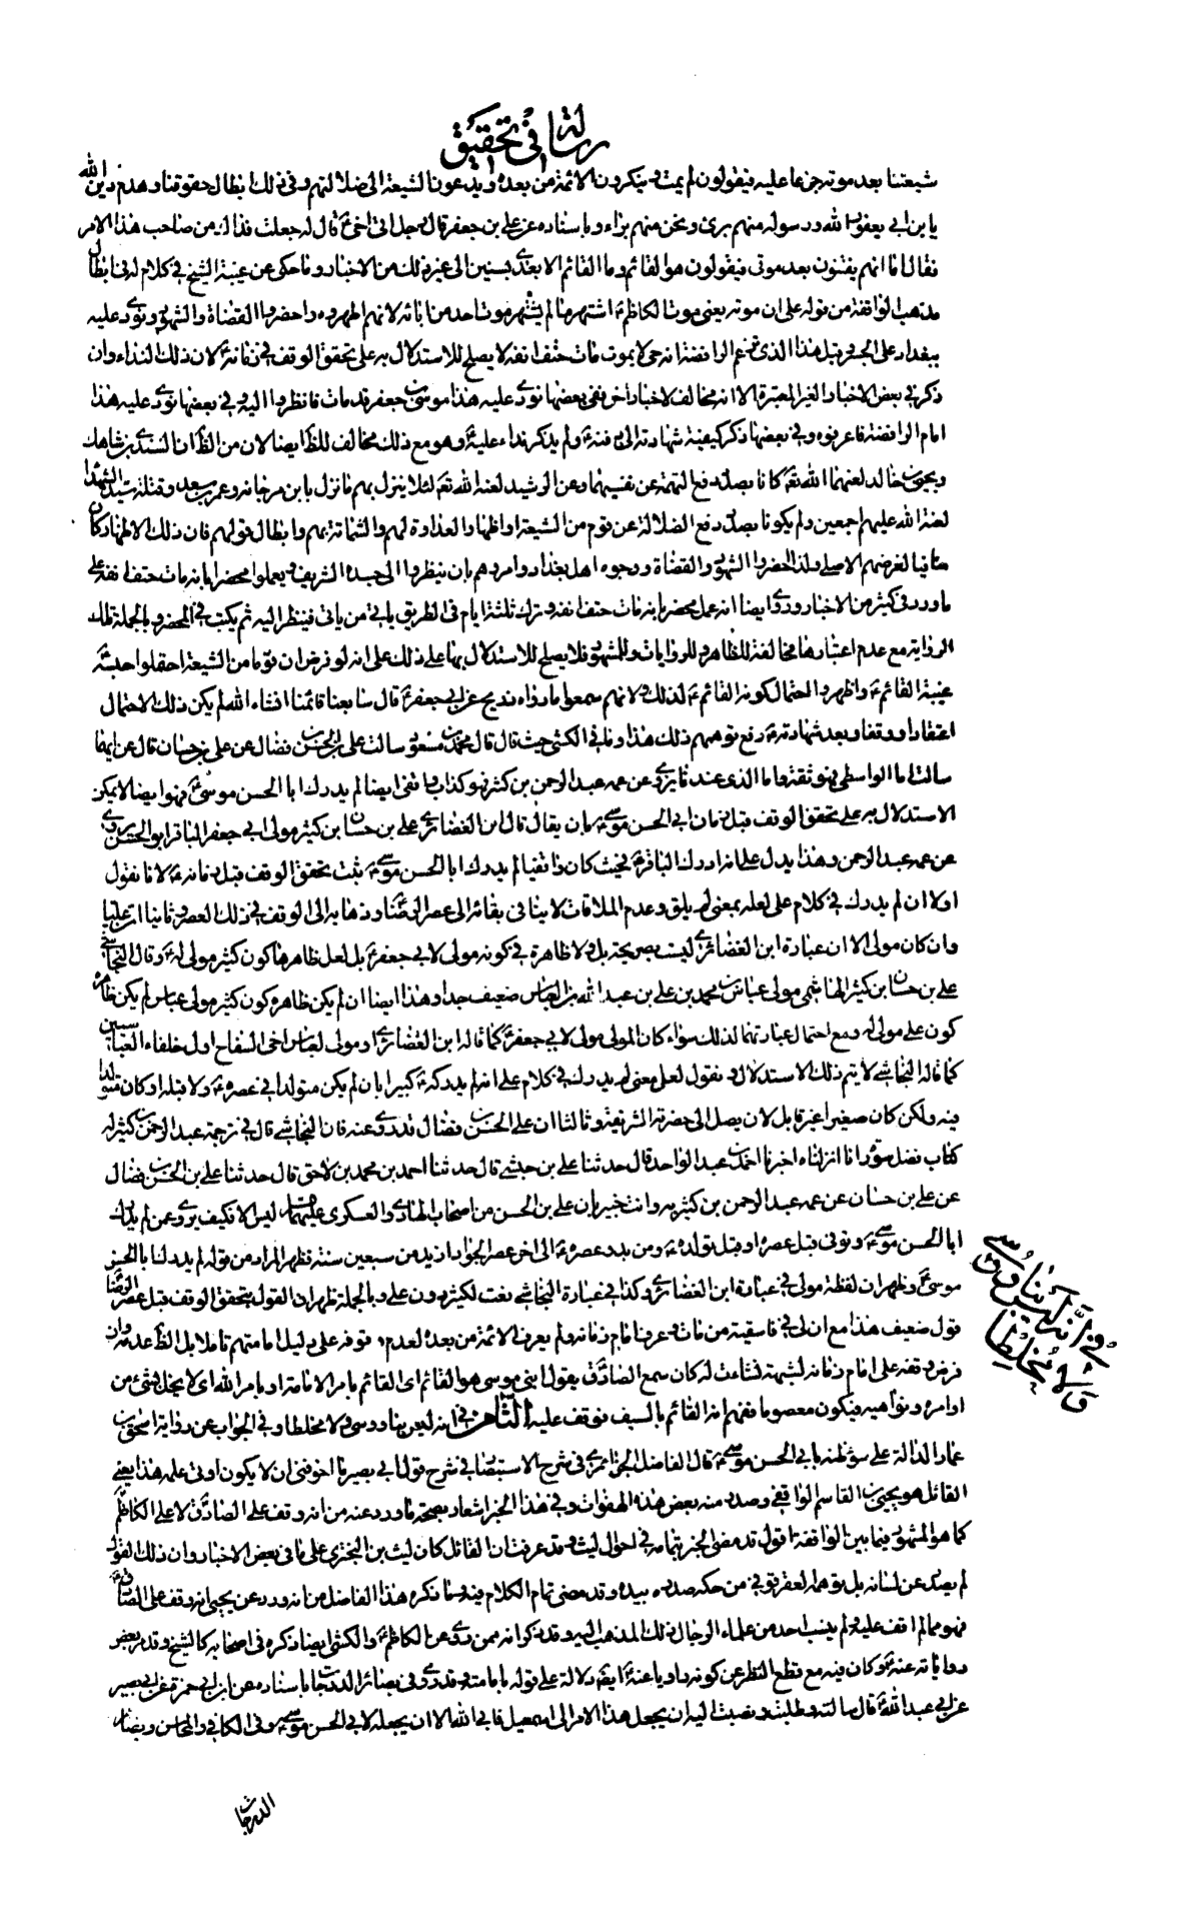 رسالة في تحقيق
شيعتنا بعد موته جزعا عليه فيقولون لم يمت وينكرون الائمة من بعده ويدعون الشيعة الى ضلالتهم وفي ذلك ابطال حقوقنا وهدم دين الله
يابن ابي يعفور الله ورسوله منهم برئ ونحن منهم براء وباسناده عن علي بن جعفر قال رجل اتى اخي ع قال له جعلت فداك من صاحب هذا الامر
فقال اما انهم يفتنون بعد موتي فيقولون هو القائم وما القائم الا بعدي بسنين الى غير ذلك من الاخبار وما حكى عن غيبة الشيخ في كلام له في ابطال
مذهب الواقفة من قوله على ان موته يعني موت الكاظم ع اشتهر ما لم يشتهر موت احد من ابائه لانهم اظهروه واحضروا القضاة والشهود ونودي عليه
ببغداد على الجسر وقيل هذا الذي تزعم الرافضة انه حي لا يموت مات حتف انفه لا يصلح للاستدلال به على تحقق الوقف في زمانه ع لان ذلك النداء وان
ذكر في بعض الاخبار الغير المعتبرة الا انه مخالف لاخبار اخر ففي بعضها نودي عليه هذا موسى بن جعفر قد مات فانظروا اليه وفي بعضها نودي عليه هذا
امام الرافضة فاعرفوه وفي بعضها ذكر كيفية شهادته الى دفنه ع ولم يذكر نداء عليه ع وهو مع ذلك مخالف للظ ايضا لان من الظ ان السندي بن شاهك
ويحيى بن خالد لعنهما الله تع كانا بصدد دفع التهمة عن نفسيهما وعن الرشيد لعنه الله تع لئلا ينزل بهم ما نزل بابن مرجانه وعمر بن سعد وقتلة سيد الشهدا
لعنة الله عليهم اجمعين ولم يكونا بصدد دفع الضلالة عن قوم من الشيعة او اظهار العداوة لهم والشماتة بهم وابطال قولهم فان ذلك الاظهار كان
منافيا لغرضهم الاصلي ولذا احضروا الشهود والقضاة ووجوه اهل بغداد وامروهم بان ينظروا الى جسده الشريف ويعملوا محضرا بانه مات حتف انفه على
ما ورد في كثير من الاخبار وروي ايضا انه عمل محضر بانه مات حتف انفه وترك ثلثة ايام في الطريق ياتي من ياتي فينظر اليه ثم يكتب في المحضر وبالجملة تلك
الرواية مع عدم اعتبارها مخالفة للظاهر وللروايات وللمشهور فلا يصلح للاستدلال بها على ذلك على انه لو فرض ان قوما من الشيعة احتملوا حبسه
غيبة القائم ع واظهروا احتمال كونه القائم ع لذلك ولانهم سمعوا ما رواه ذريح عن ابي جعفر ع قال سابعنا قائمنا انشاء الله لم يكن ذلك الاحتمال
اعتقادا ووقفا وبعد شهادته ع رفع توهمهم ذلك هذا وما في الكشي حيث قال قال محمد بن مسعود سالت علي بن الحسن بن فضال عن علي بن حسان قال عن ايهما
سالت اما الواسطي فهو ثقة واما الذي عندنا يروي عن عمه عبد الرحمن بن كثير فهو كذاب واقفي ايضا لم يدرك ابا الحسن موسى ع فهو ايضا لا يمكن
الاستدلال به على تحقق الوقف قبل زمان ابي الحسن موسى ع بان يقال قال ابن الغضائري علي بن حسان بن كثير مولى ابي جعفر الباقر ابو الحسن روى
عن عمه عبد الرحمن وهذا يدل على انه ادرك الباقر ع فحيث كان واقفيا لم يدرك ابا الحسن موسى ع ثبت تحقق الوقف قبل زمانه ع لانا نقول
اولا ان لم يدرك في كلام علي لعله بمعنى لم يلق وعدم الملاقات لا ينافي بقائه الى عصر الرضا وذهابه الى الوقف في ذلك العصر وثانيا ان عليا
وان كان مولى الا ان عبارة ابن الغضائري ليست بصريحة بل ولا ظاهرة في كونه مولى لابي جعفر ع بل لعل ظاهرها كون كثير مولى له ع وقال النجاشي
علي بن حسان بن كثير الهاشمي مولى عباس بن محمد بن علي بن عبد الله بن العباس ضعيف جدا وهذا ايضا ان لم يكن ظاهره كون كثير مولى عباس لم يكن ظاهره
كون علي مولى له ومع احتمال عبارتهما لذلك سواء كان المولى مولى لابي جعفر ع كما قاله ابن الغضائري او مولى لعباس اخي السفاح اول خلفاء العباسيين
كما قاله النجاشي لا يتم ذلك الاستدلال ونقول لعل معنى لم يدرك في كلام علي انه لم يدركه ع كبيرا بان لم يكن متولدا في عصره ع ولا قبله او كان متولدا
فيه ولكن كان صغيرا غير قابل لان يصل الى حضرته الشريفة وثالثا ان علي بن الحسن بن فضال قد روى عنه فان النجاشي قال في ترجمة عبد الرحمن بن كثير له
كتاب فضل سورة انا انزلناه اخبرنا احمد بن عبد الواحد قال حدثنا علي بن حبشي قال حدثنا احمد بن محمد بن لاحق قال حدثنا علي بن الحسن بن فضال
عن علي بن حسان عن عمه عبد الرحمن بن كثير به وانت خبير بان علي بن الحسن من اصحاب الهادي والعسكري عليهما السلام ليس الا فكيف يروي عمن لم يدرك
ابا الحسن موسى ع وتوفي قبل عصره او قبل تولده ع ومن بدو عصره ع الى اخر عصر الجواد ازيد من سبعين سنة فظهر المراد من قوله لم يدرك ابا الحسن
موسى ع وظهر ان لفظة مولى في عبارة ابن الغضائري وكذا في عبارة النجاشي نعت لكثير دون علي وبالجملة ظهر ان القول بتحقق الوقف قبل عصر الرضا
قول ضعيف هذا مع ان لي في فاسقية من مات وعرف امام زمانه ولم يعرف الائمة من بعده لعدم وقوفه على دليل امامتهم تاملا بل الظ عدمه وان
فرض وقفه على امام زمانه لشبهة نشات له كان سمع الصادق يقول ابني موسى هو القائم اى القائم بامر الامامة او بامر الله اى لا يخل بشئ من
اوامره ونواهيه فيكون معصوما ففهم انه القائم بالسيف فوقف عليه الثامن في انه ليس بناووسي ولا مخلطا وفي الجواب عن رواية اسحق بن
عمار الدالة على سؤ ظنه بابي الحسن موسى ع قال الفاضل الجزائري في شرح الاستبصار في شرح قول ابي بصير ما اخوفني ان لا يكون اوتي علمه هذا يعني
القائل هو يحيى بن القاسم الواقفي وصدر منه بعض هذه الهفوات وفي هذا الخبر اشعار بصحة ما ورد عنه من انه وقف على الصادق لا على الكاظم
كما هو المشهور فيما بين الواقفة اقول قد مضى الخبر بتمامه في احوال ليث وقد عرفت ان القائل كان ليث بن البختري على ما في بعض الاخبار وان ذلك القول
لم يصدر عن لسانه بل توهمه العقرقوفي من حكه صدره بيده وقد مضى تمام الكلام فيه وما ذكره هذا الفاضل من انه ورد عن يحيى انه وقف على الصادق ع
فهو مما لم اقف عليه ولم ينسب احد من علماء الرجال ذلك المذهب اليه وقد ذكروا انه ممن روى عن الكاظم ع والكشي ايضا ذكره في اصحابه كالشيخ وقد مر بعض
رواياته عنه ع وكان فيه مع قطع النظر عن كونه راويا عنه ع ايضا دلالة على قوله بامامته وقد روى في بصائر الدرجات باسناده عن ابن ابي حمزة عن ابي بصير
عن ابي عبد الله ع قال سالته وطلبت ونصبت اليه ان يجعل هذا الامر الى اسمعيل فابى الله الا ان يجعله لابي الحسن موسى ع وفي الكافي والمحاسن وبصائر
في انه ليس بناووسي
ولا مخلطا
الدرجات